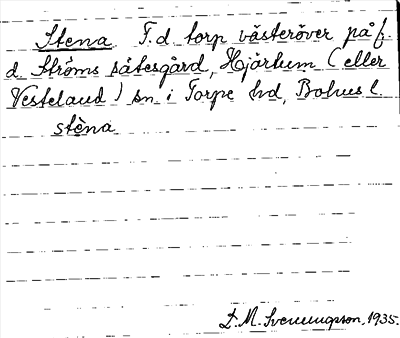 Stena T.d. torp västeröver på f.
d. Ströms sätesgård, Hjärtum (eller
Vesteland) sn i Torpe hd, Bohus l.
stèna
D. M. Svenungsson, 1935.